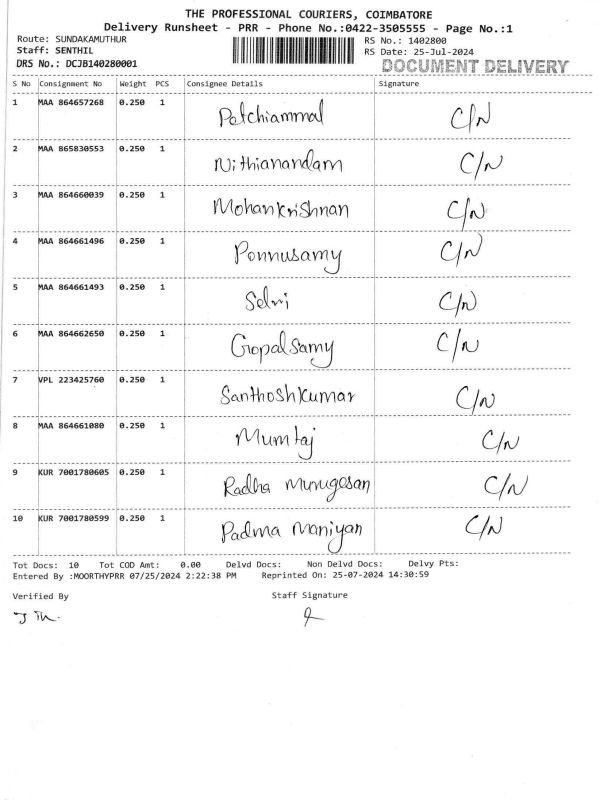 THE PROFESSIONAL COURIERS, COIMBATORE
Delivery Runsheet - PRR - Phone No.:0422-3505555 - Page No.:1
Route: SUNDAKAMUTHUR RS No.: 1402800
Staff: SENTHIL RS Date: 25-Jul-2024
DRS No.: DCJB140280001 DOCUMENT DELIVERY
S No Consignment No Weight PCS Consignee Details Signature
1 MAA 864657268 0.250 1 Petchiammal C/N
2 MAA 865830553 0.250 1 Nithianandam C/N
3 MAA 864660039 0.250 1 Mohankrishnan C/N
4 MAA 864661496 0.250 1 Ponnusamy C/N
5 MAA 864661493 0.250 1 Selvi C/N
6 MAA 864662650 0.250 1 Gopalsamy C/N
7 VPL 223425760 0.250 1 Santhoshkumar C/N
8 MAA 864661080 0.250 1 Mumtaj C/N
9 KUR 7001780605 0.250 1 Radha Murugesan C/N
10 KUR 7001780599 0.250 1 Padma Maniyan C/N
Tot Docs: 10 Tot COD Amt: 0.00 Delvd Docs: Non Delvd Docs: Delvy Pts:
Entered By :MOORTHYPRR 07/25/2024 2:22:38 PM Reprinted On: 25-07-2024 14:30:59
Verified By Staff Signature